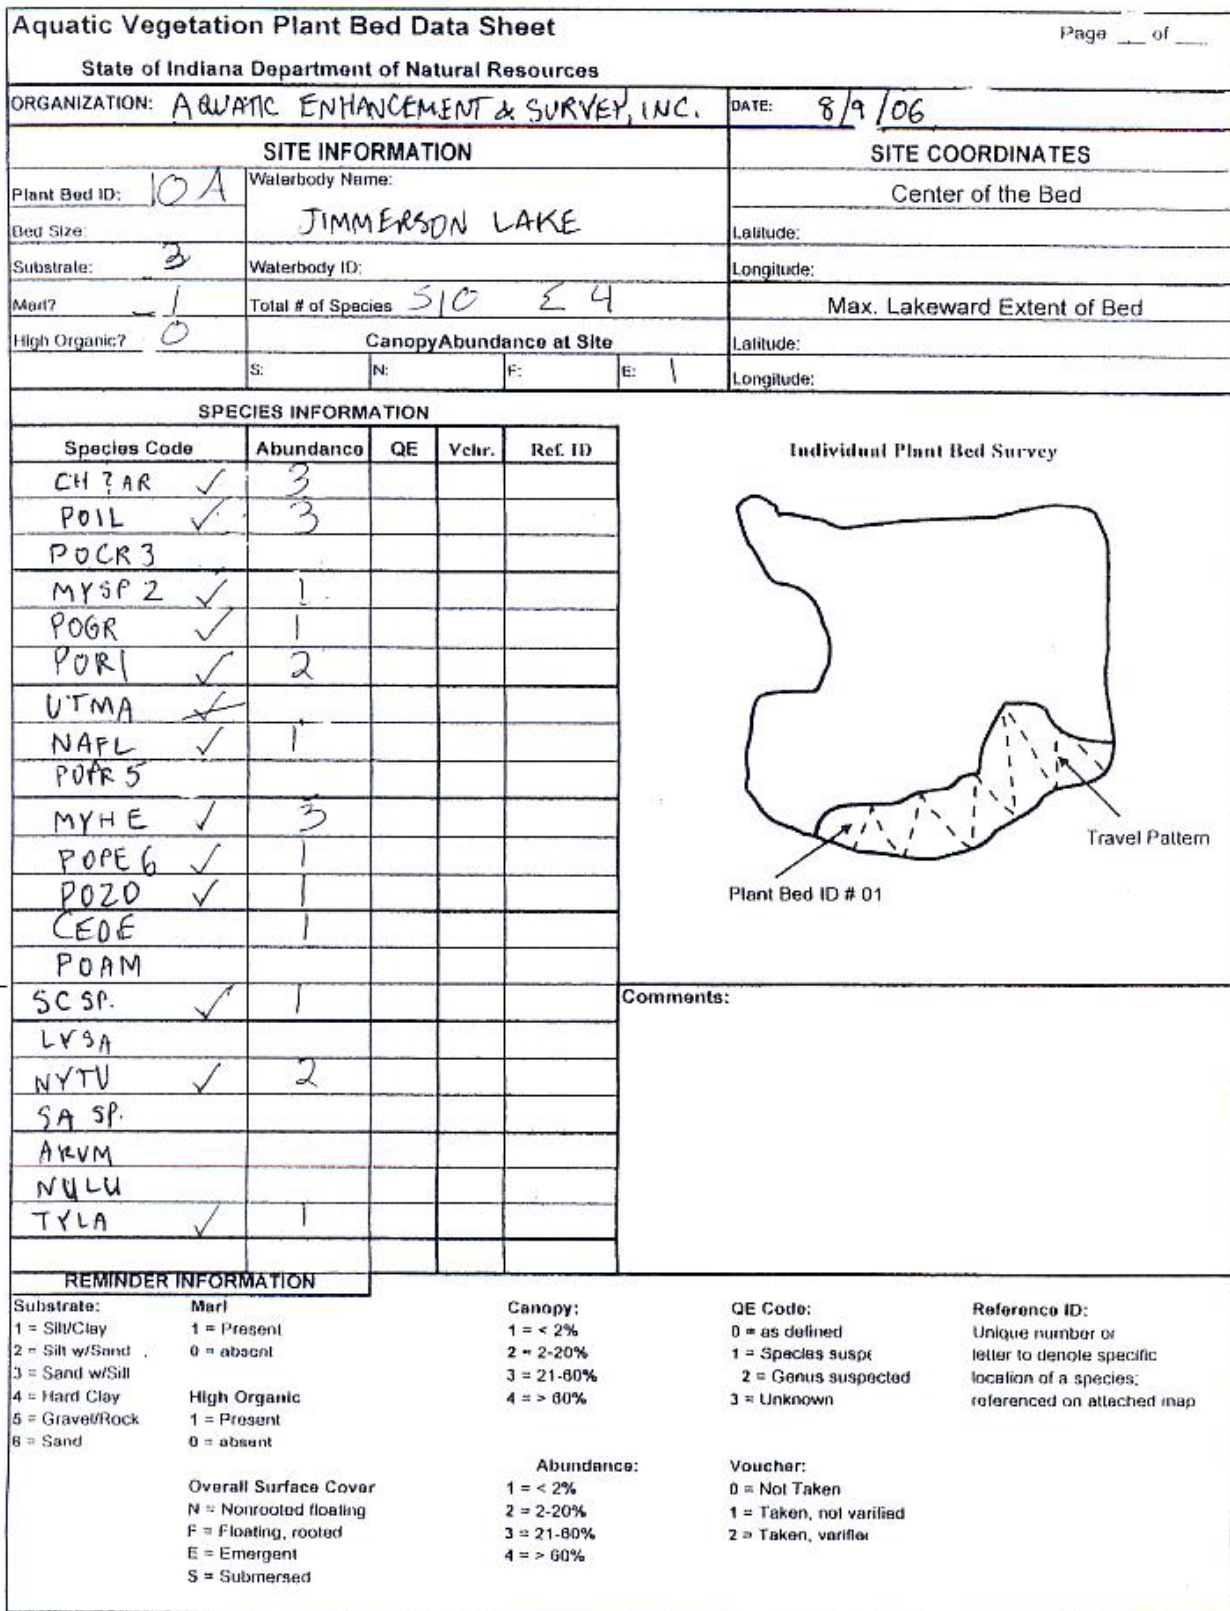 Aquatic Vegetation Plant Bed Data Sheet
Page __ of __
State of Indiana Department of Natural Resources
ORGANIZATION: AQUATIC ENHANCEMENT & SURVEY, INC.
DATE: 8/9/06
SITE INFORMATION
SITE COORDINATES
Plant Bed ID: 10A
Waterbody Name:
JIMMERSON LAKE
Center of the Bed
Bed Size:
Latitude:
Substrate: 3
Waterbody ID:
Longitude:
Marl? 1
Total # of Species S10 E 4
Max. Lakeward Extent of Bed
High Organic? 0
Canopy Abundance at Site
Latitude:
S: N: F: E: 1
Longitude:
SPECIES INFORMATION
Species Code Abundance QE Vchr. Ref. ID
Individual Plant Bed Survey
CH ? AR ✓ 3
POIL ✓ 3
POCR 3
MYSP 2 ✓ 1
POGR ✓ 1
PORI ✓ 2
UTMA ✓
NAFL ✓ 1
POPR 5
MYHE ✓ 3
POPE 6 ✓ 1
POZO ✓ 1
CEDE 1
POAM
SC SP. ✓ 1
LYSA
NYTU ✓ 2
SA SP.
ARUM
NULU
TYLA ✓ 1
Travel Pattern
Plant Bed ID # 01
Comments:
REMINDER INFORMATION
Substrate:
1 = Silt/Clay
2 = Silt w/Sand
3 = Sand w/Silt
4 = Hard Clay
5 = Gravel/Rock
6 = Sand
Marl
1 = Present
0 = absent
High Organic
1 = Present
0 = absent
Overall Surface Cover
N = Nonrooted floating
F = Floating, rooted
E = Emergent
S = Submersed
Canopy:
1 = < 2%
2 = 2-20%
3 = 21-60%
4 = > 60%
Abundance:
1 = < 2%
2 = 2-20%
3 = 21-60%
4 = > 60%
QE Code:
0 = as defined
1 = Species suspe
2 = Genus suspected
3 = Unknown
Voucher:
0 = Not Taken
1 = Taken, not varified
2 = Taken, varifier
Reference ID:
Unique number or
letter to denote specific
location of a species;
referenced on attached map